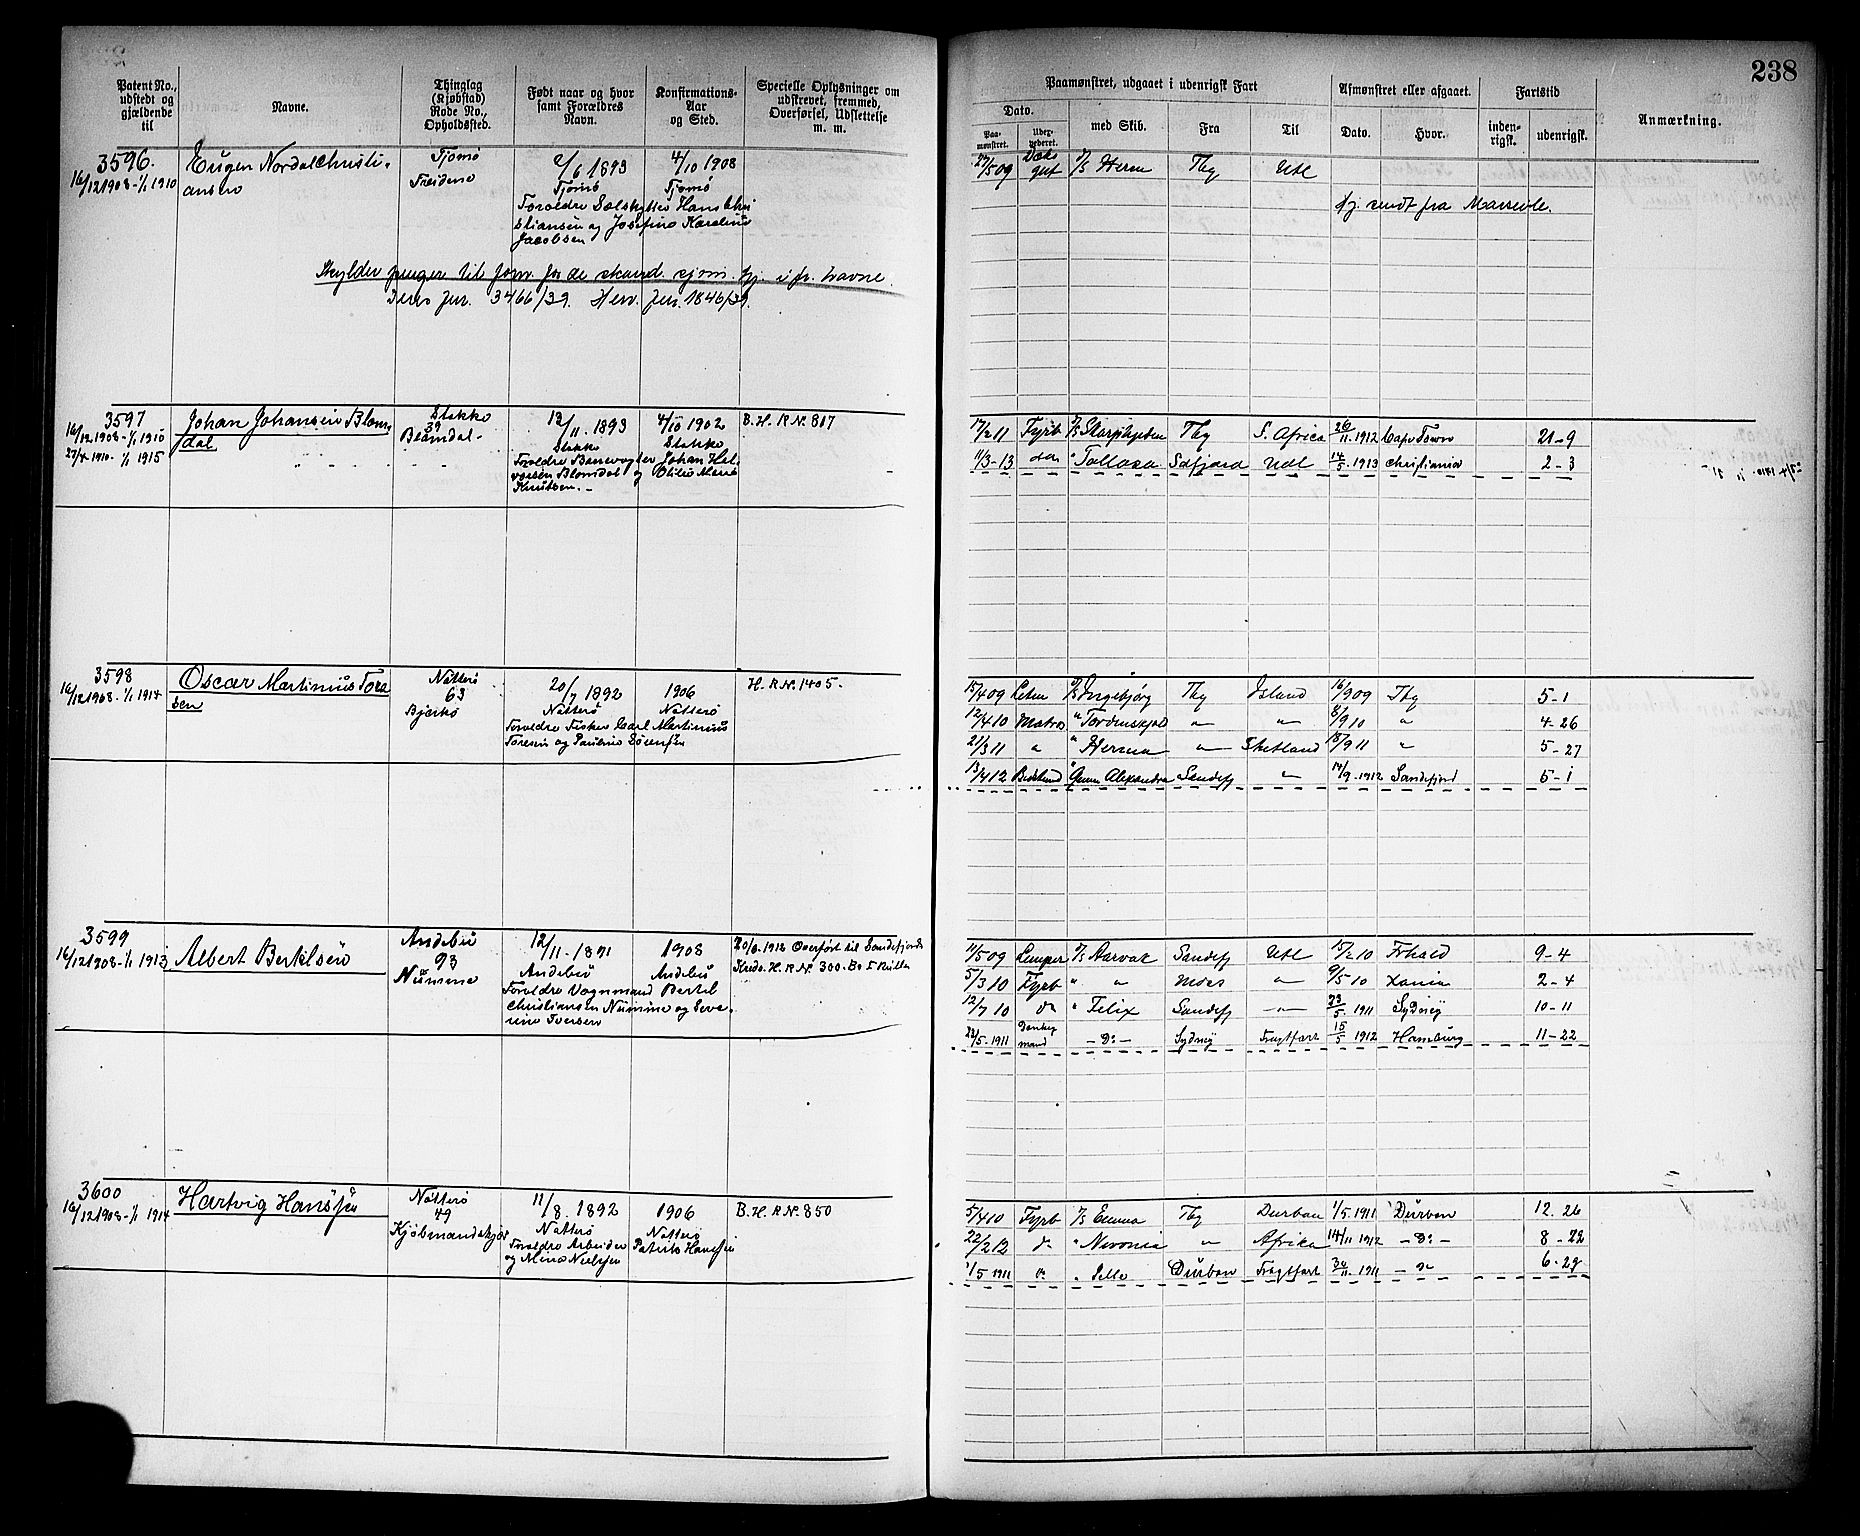 238
Patent No., udstedt og gjældende til
Navne.
Thinglag (Kjøbstad) Rode No., Opholdssted.
Født naar og hvor samt Forældres Navn.
Konfirmations-Aar og Sted.
Specielle Oplysninger om udskrevet, fremmed, Overførsel, Udslettelse m. m.
Paamønstret, udgaaet i udenrigsk Fart
Dato.
Paamønstret.
med Skib.
Fra
Til
Afmønstret eller afgaaet.
Dato.
Hvor.
Fartstid
indenrigsk.
udenrigsk.
Anmærkning.
3596.
16/12 1908 - 1/1 1910
Eugen Nordal Christiansen
Tjømø
2/6 1893
Tjømø
Forældre Sælskytter Hans Christiansen og Josefine Karoline Jacobsen
4/10 1908
Tjømø
27/5 09 Dæksgut S/S Herm Tbg Udl
Hj. sendt fra Marseille.
Skylder penger til for de skand. sjøm. hj. i fr. havne.
Deres jnr. 3466/39. Herv. jnr. 1846/39.
3597
16/12 1908 - 1/1 1910
27/4 1910 - 1/1 1915
Johan Johansen Blomdal
Stokke
39
Blomdal
13/11 1893
Stokke
Forældre Banevogter Johan Halvorsen Blomdal og Oline Marie Knutsen. -
4/10 1902
Stokke
B. H. R. N. 817
17/2 11 Fyrb Tbg S. Africa 26/11 1912 Cape Town 21 - 9
11/3 - 13 do " Udl 14/5 1913 Christiania 2 - 3
3598
16/12 1908 - 1/1 1914
Oscar Martinius Foresen
Nøtterø
63
Bjerkø
20/7 1892
Nøtterø
Forældre Fisker Carl Martinius Foresen og Pauline Sörensen
1906
Nøtterø
H. R. N. 1405.
15/4 09 Ingebjørg Tbg Island 16/9 09 Tbg 5 - 1
12/4 10 Matros " Tordenskjold " " 8/9 10 " 4 - 26
21/3 11 " " Herma " Shetland 18/9 11 " 5 - 27
13/4 12 " Gunn Alexandra Sandefj " 14/9 - 1912 Sandefjord 5 - 1
3599
16/12 1908 - 1/1 1913
Albert Bertilsen
Andebu
93
Numme
12/11 - 1891
Andebu
Forældre Vognmand Bertil Christiansen Numme og Severine Iversen
1908
Andebu
20/6 - 1912 Overført til Sandefjords Kreds. H. R. N. 300.
11/5 09 Lemper S/S Aarvak Sandefj Udl 15/2 10 Frhald 9 - 4
5/3 10 Fyrb " " Moss " 9/5 10 2 - 4
12/7 10 do " Felix Sandefj - " - 23/5 1911 Sydney 10 - 11
23/5 - 1911 Donkeymand - Do - Sydney Fragtfart 15/5 1912 Hamburg 11 - 22
3600
16/12 1908 - 1/1 1914
Hartvig Hanssen
Nøtterø
49
Kjøbmandskjær
11/8. 1892
Nøtterø
Forældre Arbeider Patrik Hanssen og Mina Nielsen
1906
Nøtterø
B. H. R. N. 850
5/4 10 Fyrb S/S Emma Tbg Durban 1/5 1911 Durban 12. 26
22/2 12 do " Neronia " Afrika 14/11 1912 - Do - 8 - 22
1/5 1911 do Durban Fragtfart 30/11 1911 - do 6 - 29